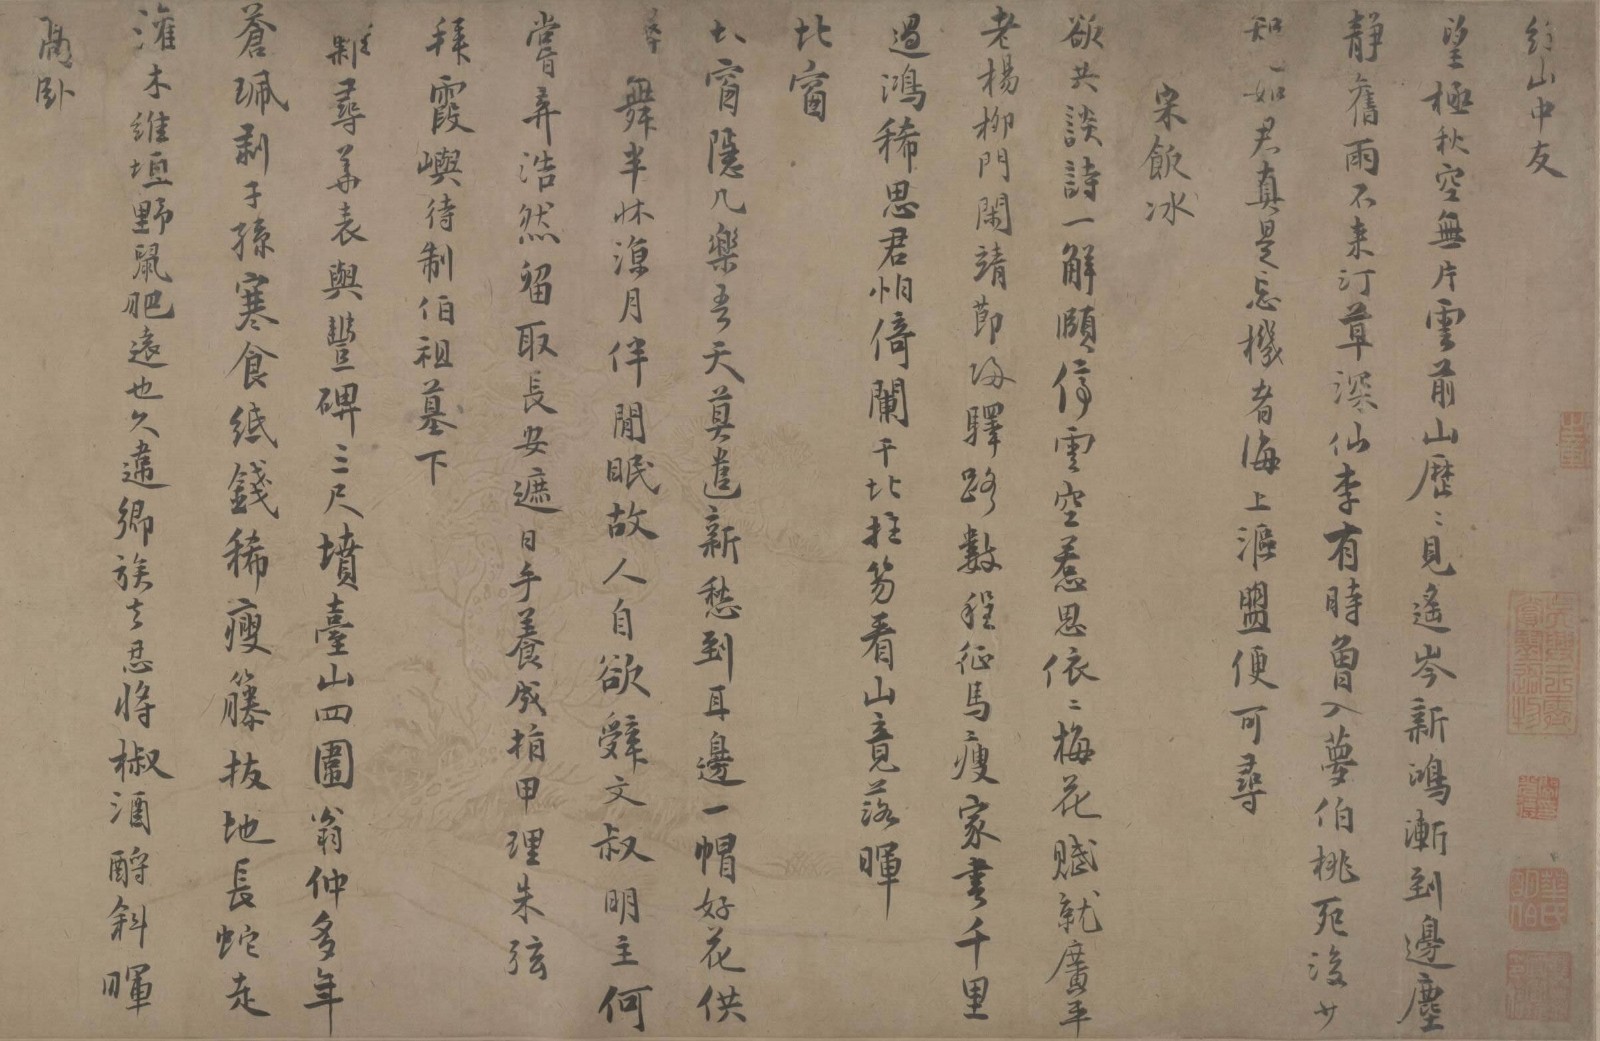 山中友
望極秋空無片雲前山歷〻見遙岑新鴻漸到邊塵
靜舊雨不來汀草深仙李有時曾入夢伯桃死後少
知〻如君真是忘機者海上漚盟便可尋
宋飲冰
欲共談詩一解頤停雲空惹思依〻梅花賦就廣平
老楊柳門閑靖節歸驛路數程征馬瘦家書千里
過鴻稀思君怕倚闌干北拄笏看山竟落暉
北窗
北窗隱几樂吾天莫遣新愁到耳邊一帽好花供
舞半牀涼月伴閒眠故人自欲辭文叔明主何
嘗弃浩然留取長安遮日手養成指甲理朱弦
拜霞嶼待制伯祖墓下
難尋華表與豐碑三尺墳臺山四圍翁仲多年
蒼珮剥子孫寒食紙錢稀瘦籐拔地長蛇走
灌木維垣野鼠肥遠也久違鄉族去忍將椒酒酹斜暉
高臥